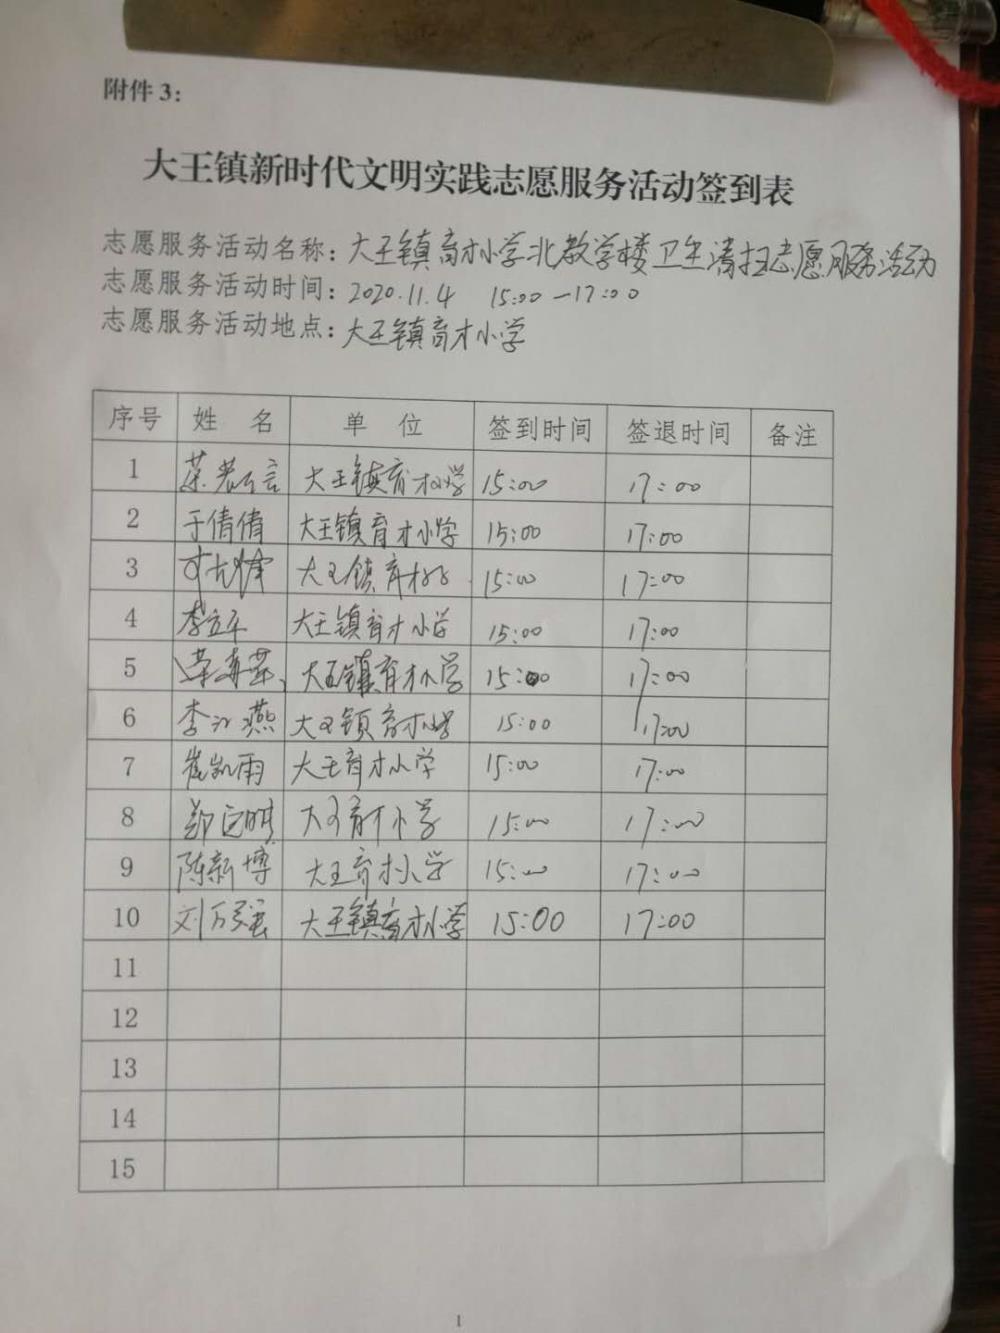 附件3:
大王镇新时代文明实践志愿服务活动签到表
志愿服务活动名称: 大王镇育才小学北教学楼卫生清扫志愿服务活动
志愿服务活动时间: 2020.11.4 15:00—17:00
志愿服务活动地点: 大王镇育才小学
序号 姓 名 单 位 签到时间 签退时间 备注
1 大王镇育才小学 15:00 17:00
2 于倩倩 大王镇育才小学 15:00 17:00
3 大王镇育才小学 15:00 17:00
4 李立军 大王镇育才小学 15:00 17:00
5 大王镇育才小学 15:00 17:00
6 李江燕 大王镇育才小学 15:00 17:00
7 崔凯雨 大王育才小学 15:00 17:00
8 大王育才小学 15:00 17:00
9 陈新博 大王育才小学 15:00 17:00
10 刘万强 大王镇育才小学 15:00 17:00
11
12
13
14
15
1